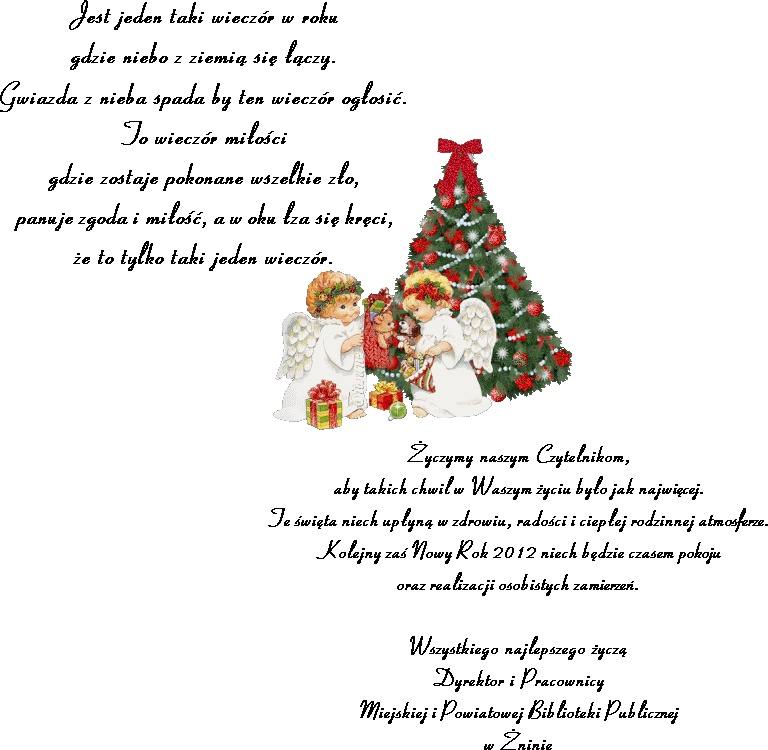 Jest jeden taki wieczór w roku
gdzie niebo z ziemią się łączy.
Gwiazda z nieba spada by ten wieczór ogłosić.
To wieczór miłości
gdzie zostaje pokonane wszelkie zło,
panuje zgoda i miłość, a w oku łza się kręci,
że to tylko taki jeden wieczór.
Życzymy naszym Czytelnikom,
aby takich chwil w Waszym życiu było jak najwięcej.
Te święta niech upłyną w zdrowiu, radości i ciepłej rodzinnej atmosferze.
Kolejny zaś Nowy Rok 2012 niech będzie czasem pokoju
oraz realizacji osobistych zamierzeń.
Wszystkiego najlepszego życzą
Dyrektor i Pracownicy
Miejskiej i Powiatowej Biblioteki Publicznej
w Żninie